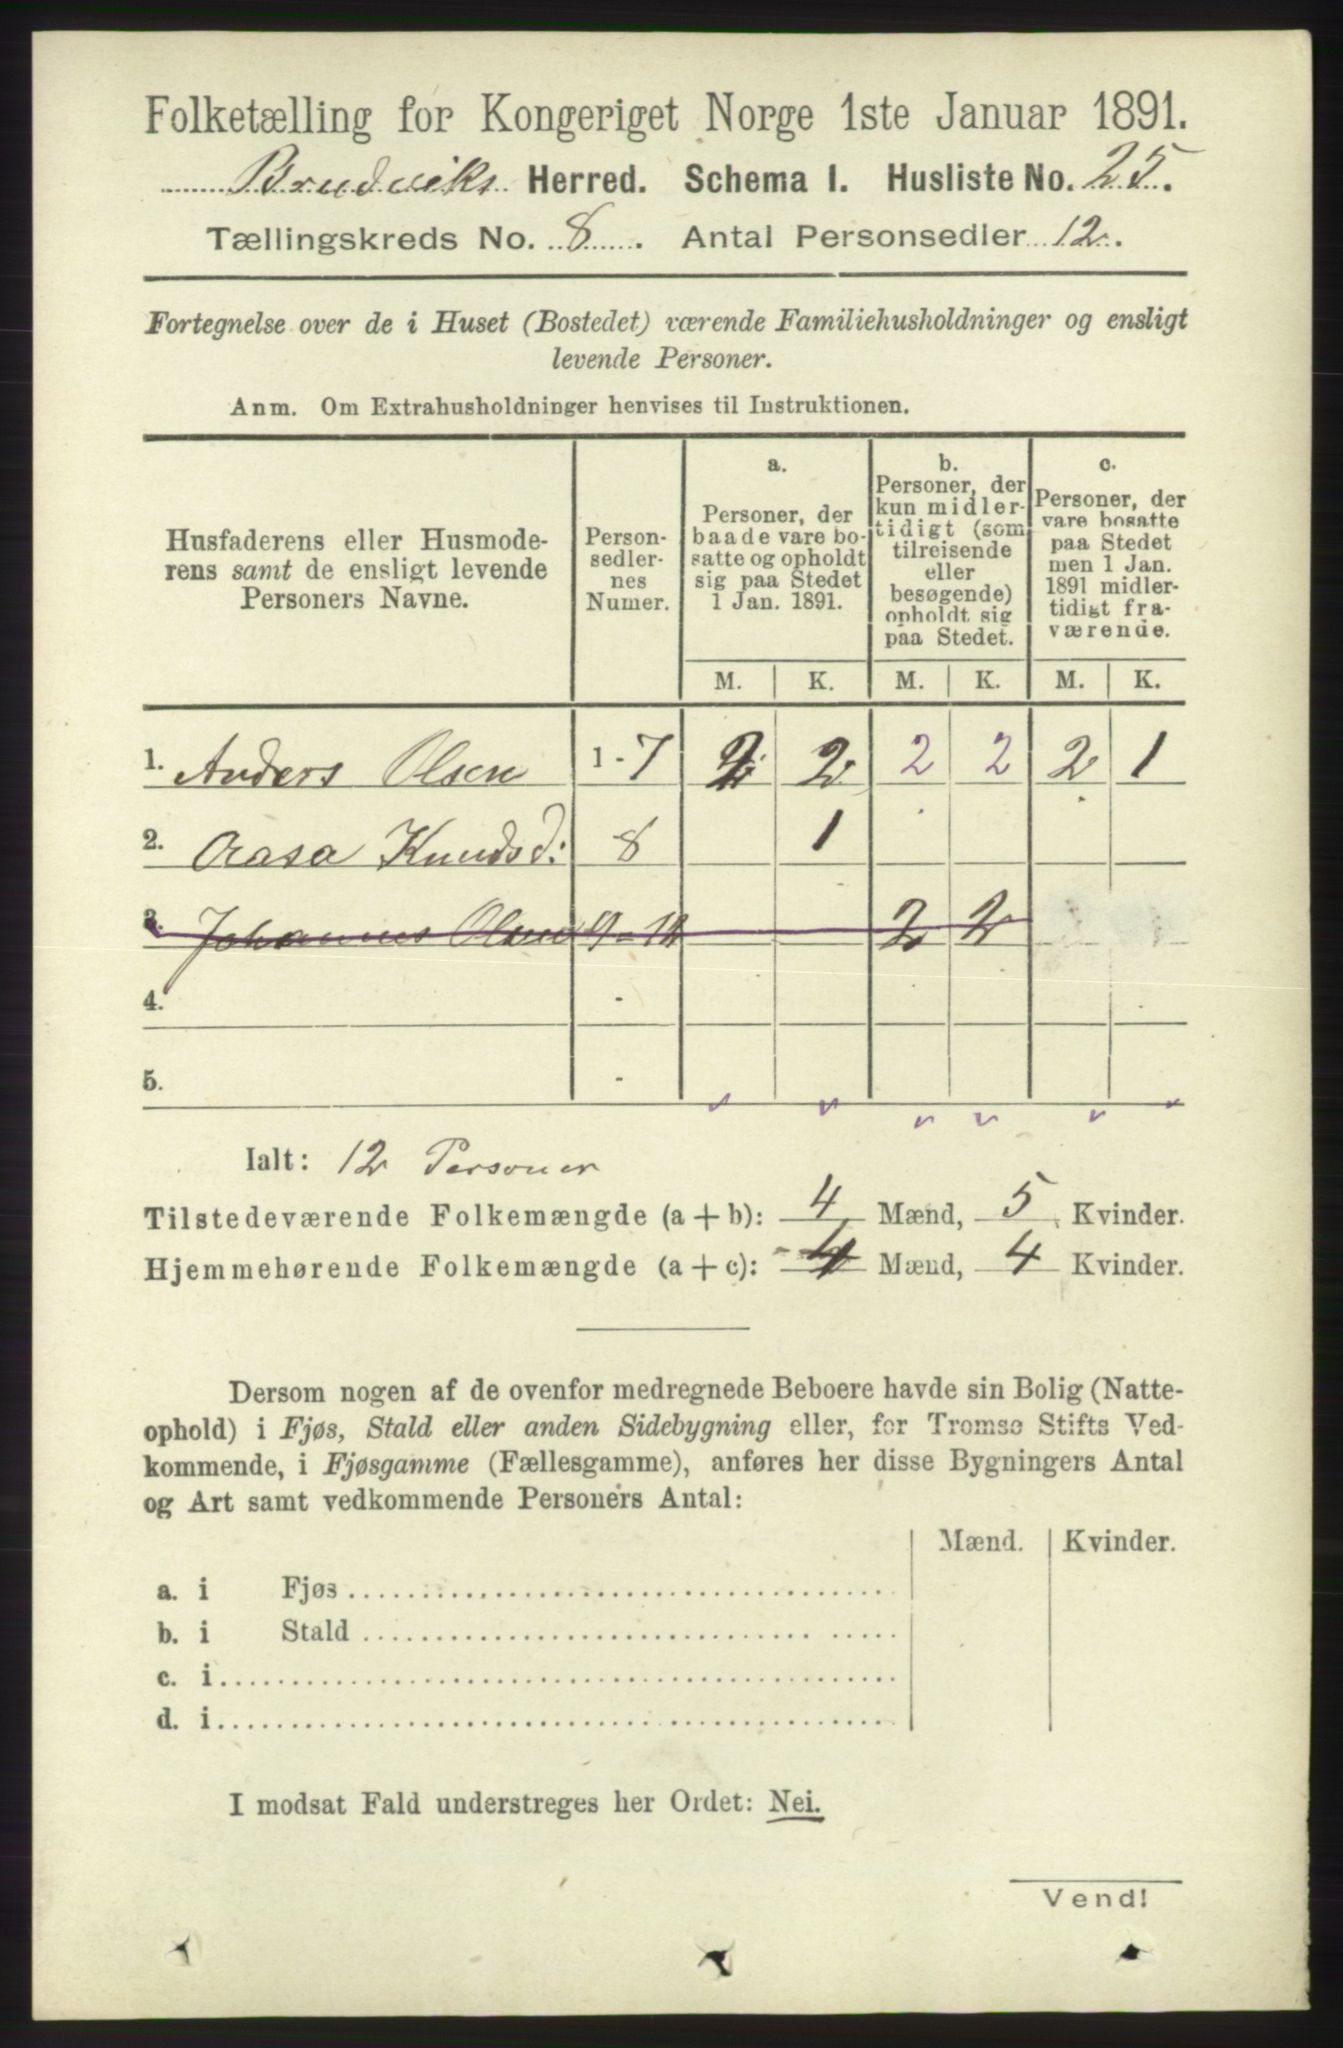 Folketælling for Kongeriget Norge 1ste Januar 1891.
Brudviks Herred. Schema 1. Husliste No. 25.
Tællingskreds No. 8. Antal Personsedler 12.
Fortegnelse over de i Huset (Bostedet) værende Familiehusholdninger og ensligt
levende Personer.
Anm. Om Extrahusholdninger henvises til Instruktionen.
Husfaderens eller Husmode-
rens samt de ensligt levende
Personers Navne.
Person-
sedler-
nes
Numer.
a.
Personer, der
baade vare bo-
satte og opholdt
sig paa Stedet
1 Jan. 1891.
b.
Personer, der
kun midler-
tidigt (som
tilreisende
eller
besøgende)
opholdt sig
paa Stedet.
c.
Personer, der
vare bosatte
paa Stedet
men 1 Jan.
1891 midler-
tidigt fra-
værende.
M. K. M. K. M. K.
1. Anders Olsen 1-7 2 2 2 2 2 1
2. Aasa Knudsd: 8 1
3. Johannes Olsen 9-12 2 2
4. -
5. -
Ialt: 12 Personer
Tilstedeværende Folkemængde (a+b): 4 Mænd, 5 Kvinder.
Hjemmehørende Folkemængde (a+c): 4 Mænd, 4 Kvinder.
Dersom nogen af de ovenfor medregnede Beboere havde sin Bolig (Natte-
ophold) i Fjøs, Stald eller anden Sidebygning eller, for Tromsø Stifts Ved-
kommende, i Fjøsgamme (Fællesgamme), anføres her disse Bygningers Antal
og Art samt vedkommende Personers Antal:
Mænd. Kvinder.
a. i Fjøs
b. i Stald
c. i
d. i
I modsat Fald understreges her Ordet: Nei.
Vend!